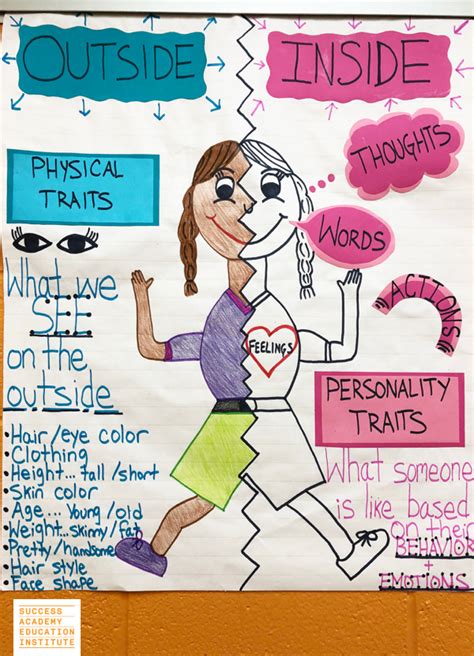 OUTSIDE
PHYSICAL
TRAITS
What we
SEE
on the
outside
• Hair/eye color
• Clothing
• Height... tall/short
• Skin color
• Age... Young/old
• Weight...skinny/fat
• Pretty/handsome
• Hair style
• Face shape
INSIDE
THOUGHTS
WORDS
ACTIONS
FEELINGS
PERSONALITY
TRAITS
What someone
is like based
on their
BEHAVIOR
+
EMOTIONS
SUCCESS
ACADEMY
EDUCATION
INSTITUTE